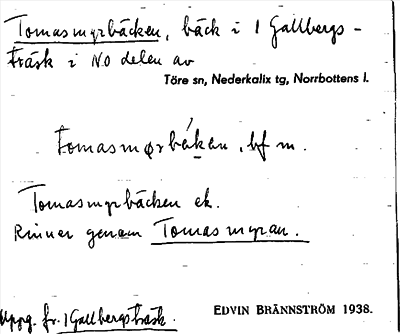 Tomasmyrbäcken, bäck i 1 Gallbergs-
träsk i NO delen av
Töre sn, Nederkalix tg, Norrbottens l.
tomasmørbäkan, bf m.
Tomasmyrbäcken ek.
Rinner genom Tomasmyran.
Uppg. fr. 1 Gallbergsträsk.
EDVIN BRÄNNSTRÖM 1938.